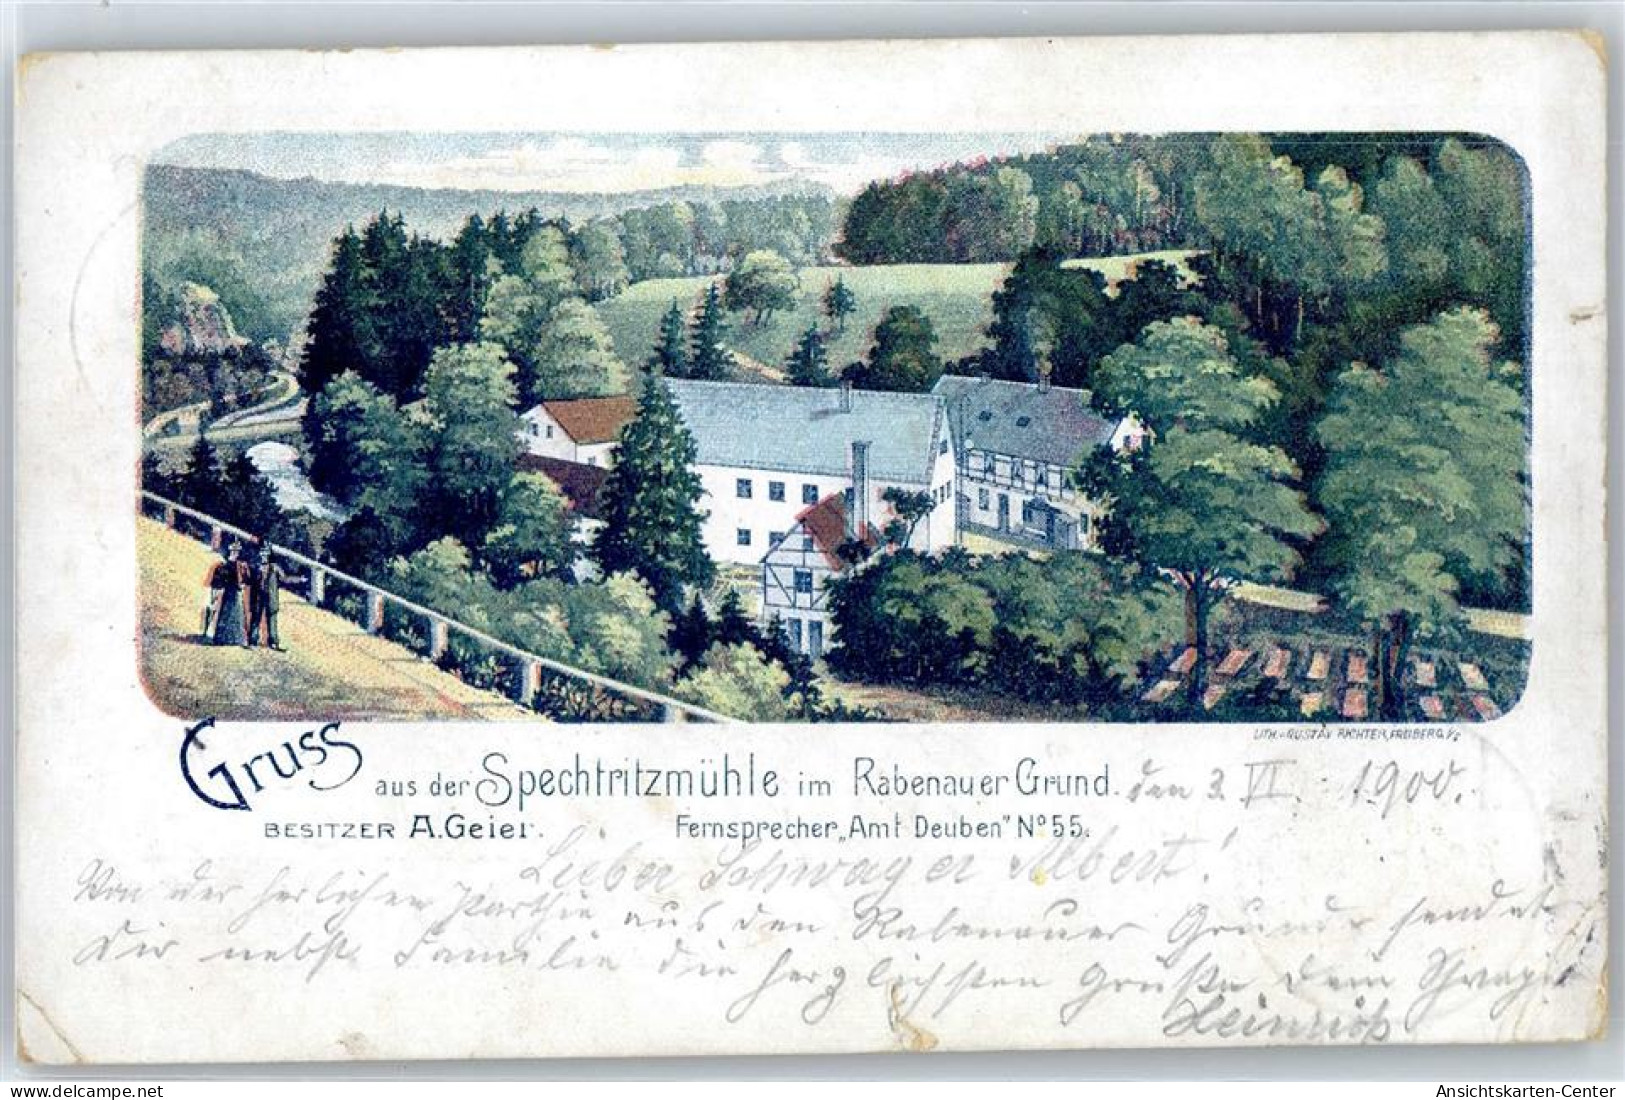 Gruss aus der Spechtritzmühle im Rabenauer Grund. den 3. VI. 1900.
BESITZER A. Geier. Fernsprecher „Amt Deuben" No 55.
LITH. v. GUSTAV RICHTER, FREIBERG I/S
Lieber Schwager Albert!
Von der herlichen Parthie aus den Rabenauer Grunde sendet
Dir nebst Familie die herzlichsten Grüße Dein Schwager
Heinrich
Ansichtskarten-Center